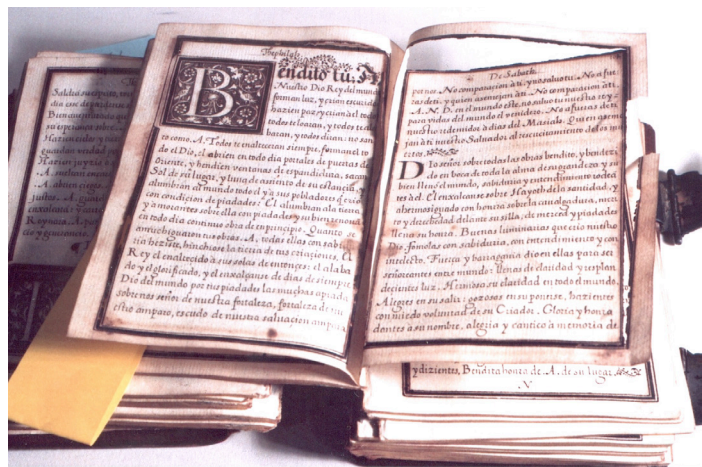 Saldra su espirito,
dia que
Bienaventurado que
su esperança sobre
Thephilah.
Bendito tu: A
Nuestro Dio Rey del mundo
forman luz, y crian escurida
hazien paz, y crian à el todo
todos te loaran, y todos te ala
baran, y todos diran: no san
to como .A. Todos te enalteceran siempre, formante el to
do el Dio, el abrien en todo dia portales de puertas de
Oriente, y hendien ventanas de espandidura, sacan
Sol de su lugar, y luna de assiento de su estancia, y
alumbran al mundo todo el y a sus pobladores q crio
con condicion de piadades. El alumbran a la tierra
y a morantes sobre ella con piadades y su bien renovan
en todo dia continuo obra de enprincipio. Quanto se
muchiguaron tus obras .A. todas ellas con sabidu
ria hezistes, hinchiose la tierra de tus criaciones. El
Rey el enalteçido à sus solas de entonçes: el alaba
do y el glorificado, y el enxalçanse de dias de siempre
Dio del mundo por tus piadades las muchas apiada
sobre nos señor de nuestra fortaleza, fortaleza de nu
estro amparo, escudo de nuestra salvacion ampara
De Sabath.
por nos. No comparacion à ti, y no salvo tu: No a fue
ras de ti, y quien asemejan à ti. No comparacion à ti
.A. N. D. en el mundo este, no salvo tu nuestro rey
para vidas del mundo el venidero. No a fueras de ti
nuestro redemidor à dias del Masiah. Quien asemē
jan à ti nuestro Salvador al rebivicimiento de los mu
ertos.
Dio señor sobre todas las obras bendito, y bendezi
do en boca de toda la alma de su grandeza y su
bien lleno el mundo, sabiduria y entendimiento rodeā
tes à el. El enxalçanse sobre Hayoth de la santidad, y
ahermosiguado con honrra sobre la cavalgadura, meri
to y derechedad delante su silla, de merced y piadades
llena su honrra. Buenas luminarias que crio nuestro
Dio formolas con sabiduria, con entendimiento y con
intelecto. Fuerça y barragania dio en ellas para ser
señoreantes entre mundo: llenas de claridad y resplan
decientes luz. Hermoso su claridad en todo el mundo,
Alegres en su salir: gozosos en su ponerse, hazientes
con miedo voluntad de su Criador. Gloria y honrra
dantes a su nombre, alegria y cantico a memoria de
y dizientes, Bendita honra de .A. de su lugar.
.V.